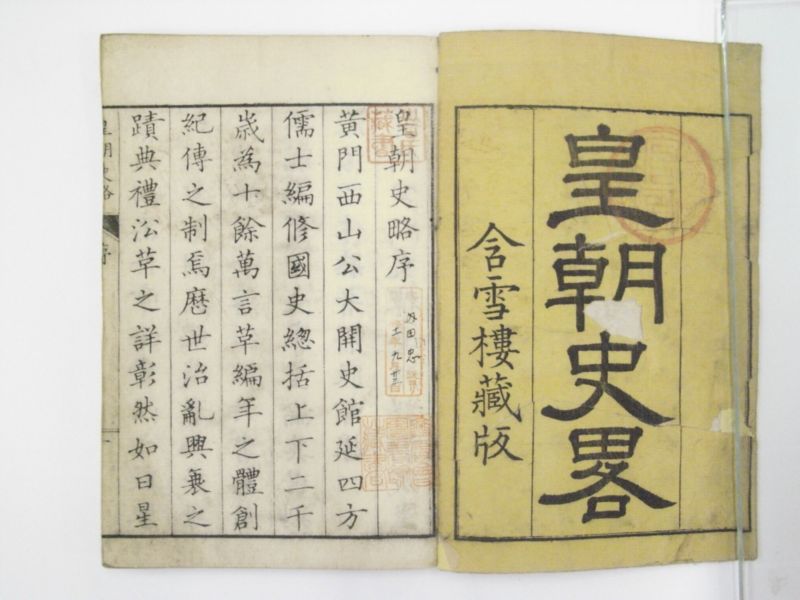 皇朝史畧
含雪樓藏版
皇朝史略序
黃門西山公大開史館延四方
儒士編修國史總括上下二千
歲為十餘萬言草編年之體創
紀傳之制焉歷世治亂興衰之
蹟典禮沿革之詳彰然如日星
皇朝史略
序